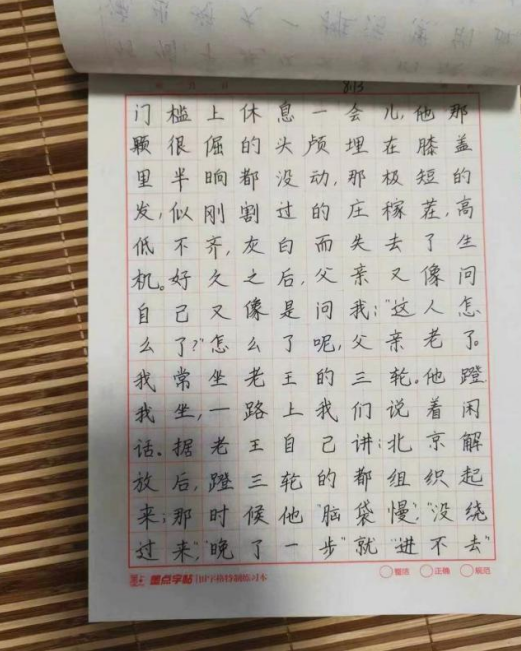 8.13
门槛上休息一会儿,他那
颗很倔的头颅埋在膝盖
里半晌都没动,那极短的
发,似刚割过的庄稼茬,高
低不齐,灰白而失去了生
机。好久之后,父亲又像问
自己又像是问我:"这人怎
么了?"怎么了呢,父亲老了。
我常坐老王的三轮。他蹬
我坐,一路上我们说着闲
话。据老王自己讲:北京解
放后,蹬三轮的都组织起
来;那时候他"脑袋慢","没绕
过来","晚了一步"就"进不去"
墨点字帖 田字格特制练习本
整洁 正确 规范